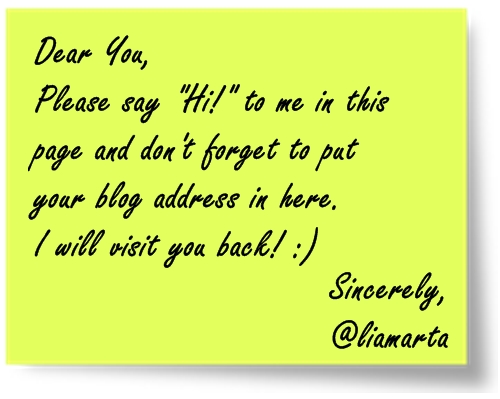 Dear You,
Please say "Hi!" to me in this
page and don't forget to put
your blog address in here.
I will visit you back! :)
Sincerely,
@liamarta